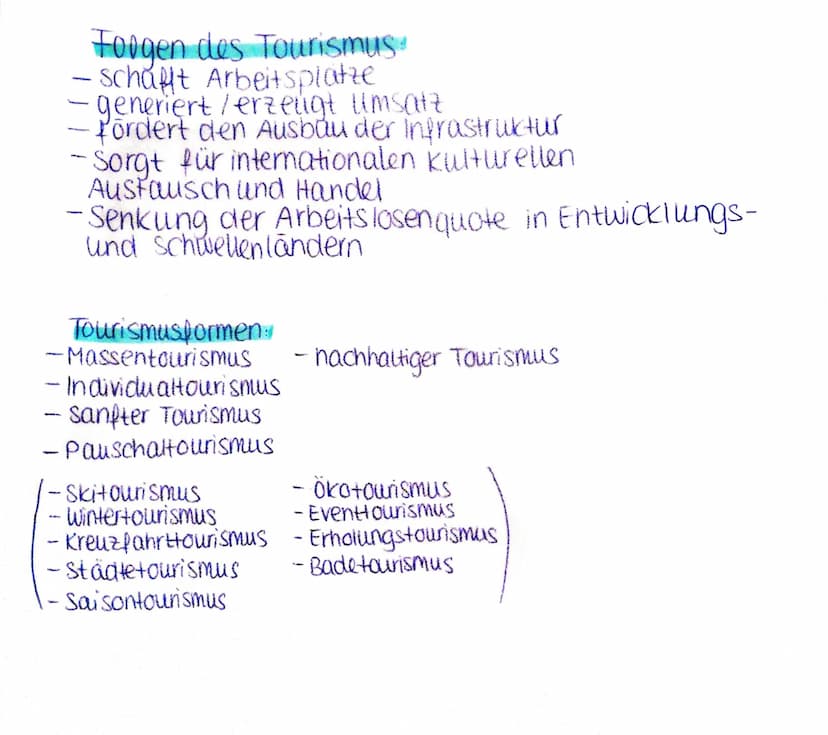 Folgen des Tourismus:
- schafft Arbeitsplätze
- generiert / erzeugt Umsatz
- fördert den Ausbau der Infrastruktur
- Sorgt für internationalen kulturellen
Austausch und Handel
- Senkung der Arbeitslosenquote in Entwicklungs-
und Schwellenländern
Tourismusformen:
- Massentourismus - nachhaltiger Tourismus
- Individualtourismus
- Sanfter Tourismus
- Pauschaltourismus
- Skitourismus - Ökotourismus
- Wintertourismus - Eventtourismus
- Kreuzfahrttourismus - Erholungstourismus
- Städtetourismus - Badetourismus
- Saisontourismus